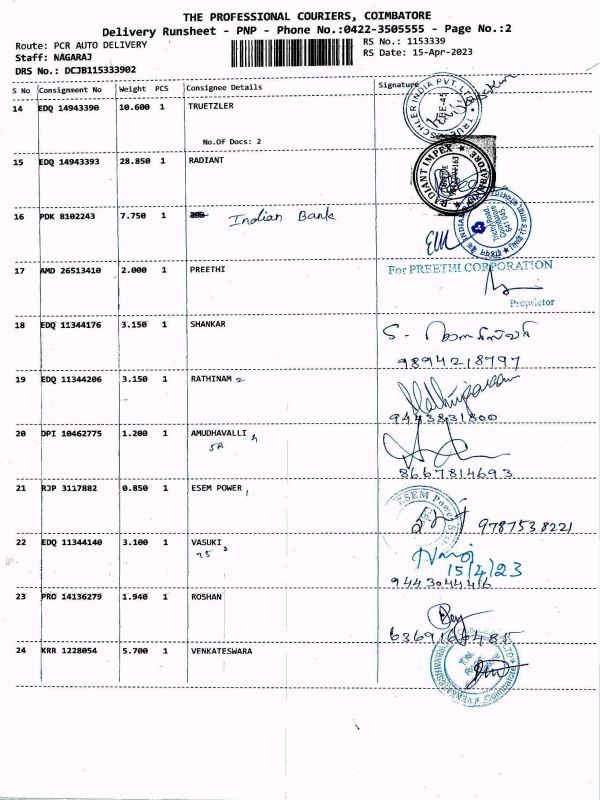 THE PROFESSIONAL COURIERS, COIMBATORE
Delivery Runsheet - PNP - Phone No.:0422-3505555 - Page No.:2
Route: PCR AUTO DELIVERY RS No.: 1153339
Staff: NAGARAJ RS Date: 15-Apr-2023
DRS No.: DCJB115333902
S No Consignment No Weight PCS Consignee Details Signature
14 EDQ 14943390 10.600 1 TRUETZLER
No.Of Docs: 2
15 EDQ 14943393 28.850 1 RADIANT
RADIANT IMPEX
COIMBATORE
16 PDK 8102243 7.750 1 Indian Bank
Trichy Road
Coimbatore
641 045
17 AMD 26513410 2.000 1 PREETHI
For PREETHI CORPORATION
Proprietor
18 EDQ 11344176 3.150 1 SHANKAR
9894218797
19 EDQ 11344206 3.150 1 RATHINAM 2
9443831800
20 DPI 10462775 1.200 1 AMUDHAVALLI
5A
8667814693
21 RJP 3117882 0.850 1 ESEM POWER
ESEM Power
9787538221
22 EDQ 11344140 3.100 1 VASUKI
75
15/4/23
9443044416
23 PRO 14136279 1.940 1 ROSHAN
24 KRR 1228054 5.700 1 VENKATESWARA